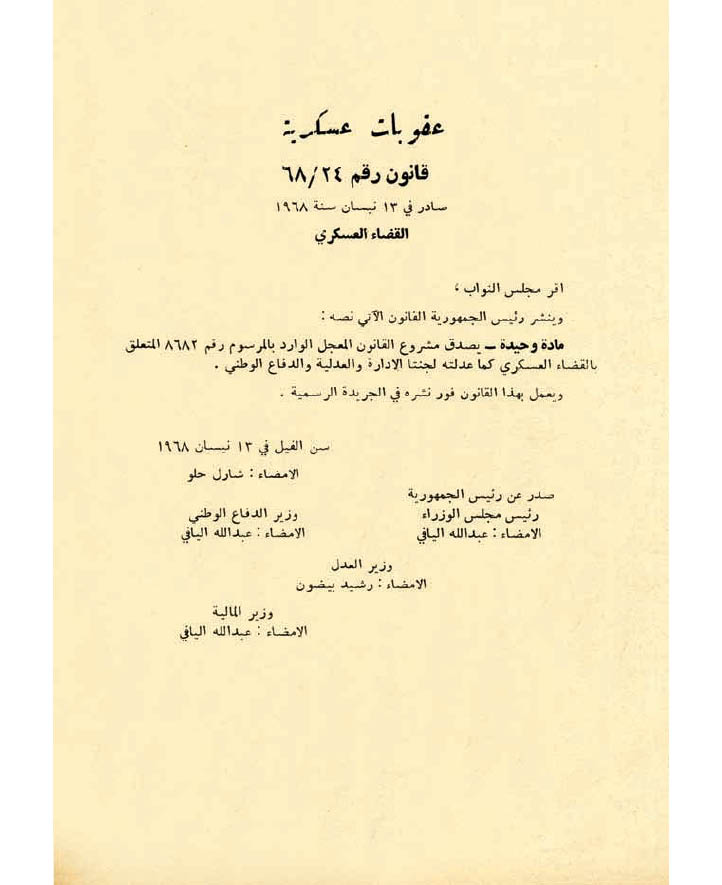 عقوبات عسكرية
قانون رقم ٦٨/٢٤
صادر في ١٣ نيسان سنة ١٩٦٨
القضاء العسكري
اقر مجلس النواب ،
وينشر رئيس الجمهورية القانون الآتي نصه :
مادة وحيدة ــ يصدق مشروع القانون المعجل الوارد بالمرسوم رقم ٨٦٨٢ المتعلق
بالقضاء العسكري كما عدلته لجنتا الادارة والعدلية والدفاع الوطني .
ويعمل بهذا القانون فور نشره في الجريدة الرسمية .
سن الفيل في ١٣ نيسان ١٩٦٨
الامضاء : شارل حلو
صدر عن رئيس الجمهورية
رئيس مجلس الوزراء وزير الدفاع الوطني
الامضاء : عبدالله اليافي الامضاء : عبدالله اليافي
وزير العدل
الامضاء : رشيد بيضون
وزير المالية
الامضاء : عبدالله اليافي